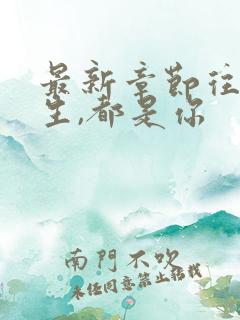 最新章節往
生,都是你
南門不吹
未经同意禁止转载